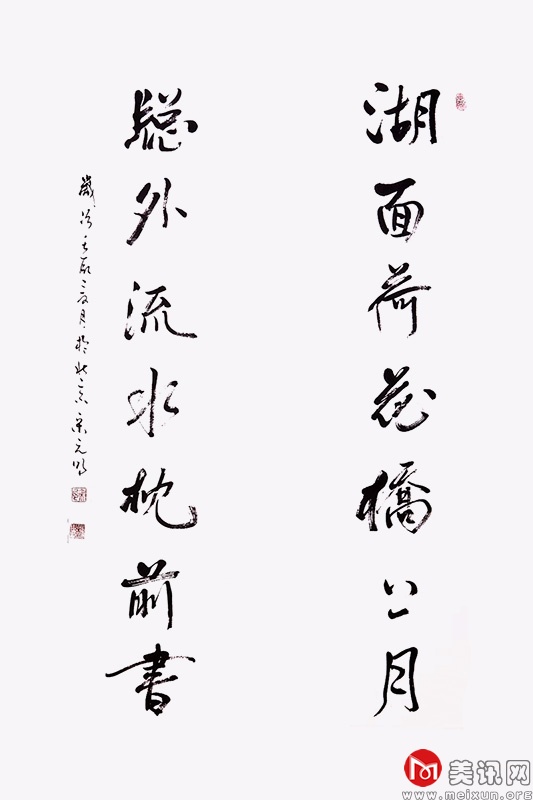 湖面荷花橋上月
牕外流水枕前書
歲次壬辰夏月於北京宋元明
美讯网
www.meixun.org